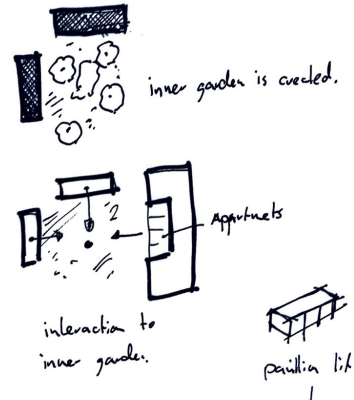 inner garden is created.
Appartmets
interaction to
inner garden.
pavillion